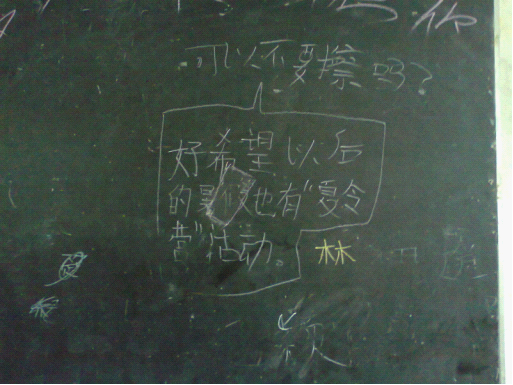 你
可以不要擦吗?
好希望以后
的暑假也有“夏令
营”活动。
林